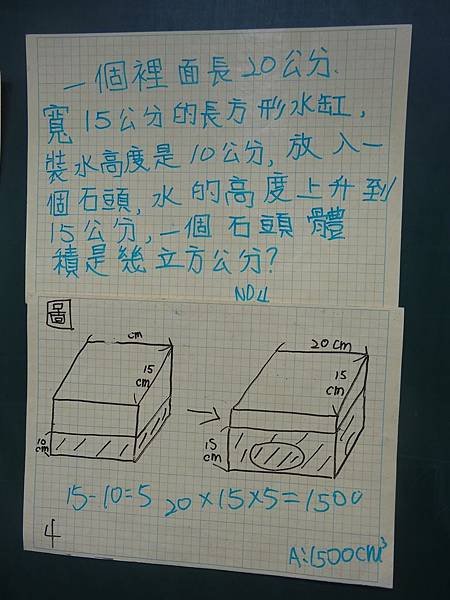 一個裡面長20公分、
寬15公分的長方形水缸,
裝水高度是10公分,放入一
個石頭,水的高度上升到
15公分,一個石頭體
積是幾立方公分?
NO.4
圖
cm
15
cm
10
cm
20cm
15
cm
15
cm
15-10=5 20×15×5=1500
4
A:1500cm³